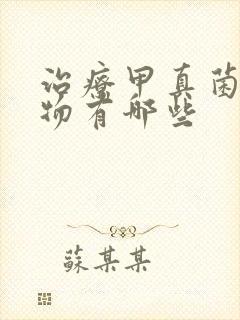 治療甲真菌
物有哪些
蘇某某